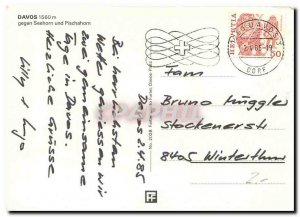 DAVOS 1560 m
gegen Seehorn und Pischahorn
Davos 2.4.85
Bei herrlichstem
Wetter geniessen wir
zwei gemeinsame
Tage in Davos.
Herzliche Grüsse
HELVETIA
50
DAVOS
DORF
Fam
Bruno Müggler
Stockenerstr
8405 Winterthur